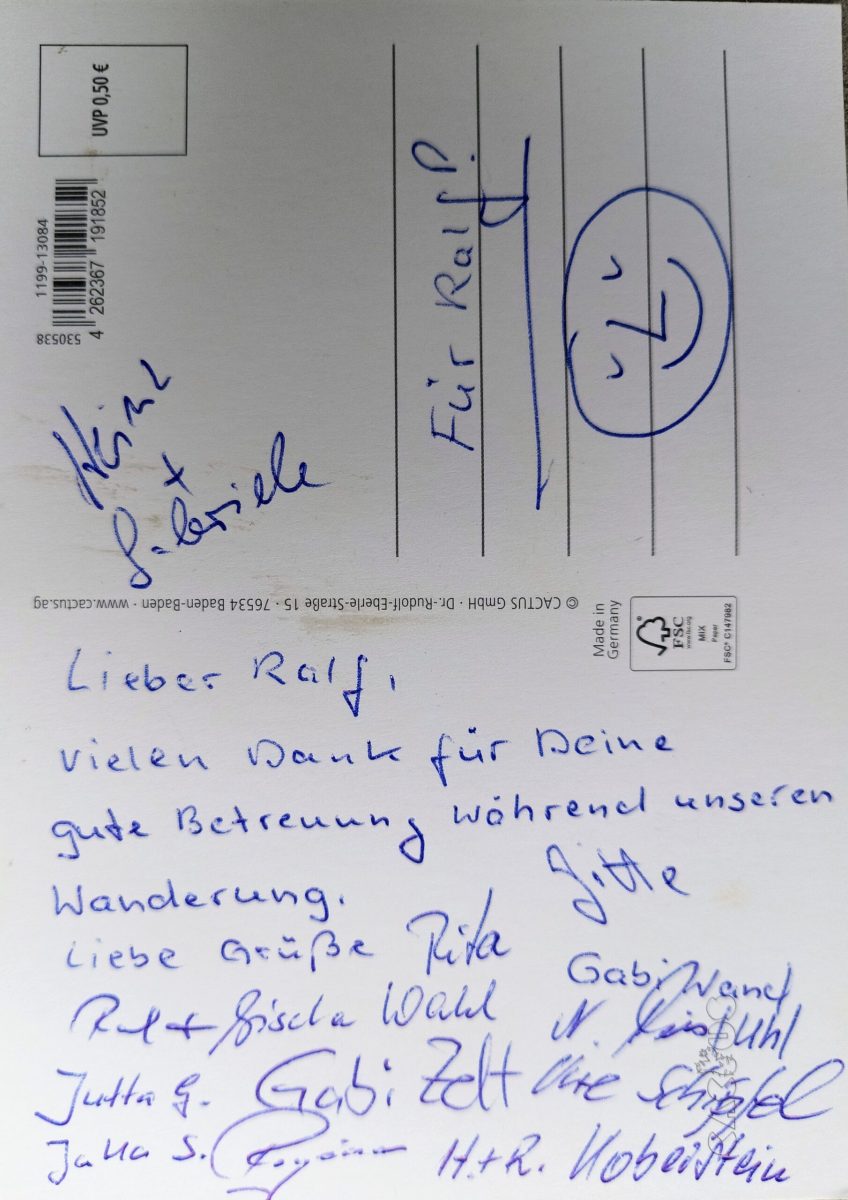 UVP 0,50 €
1199-13084
4 262367 191852
530538
Für Ralf P.
Heinz
+
Gabriele
© CACTUS GmbH · Dr.-Rudolf-Eberle-Straße 15 · 76534 Baden-Baden · www.cactus.ag
Made in
Germany
FSC
www.fsc.org
MIX
Paper
FSC® C147982
Lieber Ralf,
vielen Dank für Deine
gute Betreuung während unseren
Wanderung.
Gitte
Liebe Grüße Rita
Gabi Wand
+ Gisela Wahl
N.
Jutta G. Gabi Zelt
Jutta S. H.+R. Koberstein